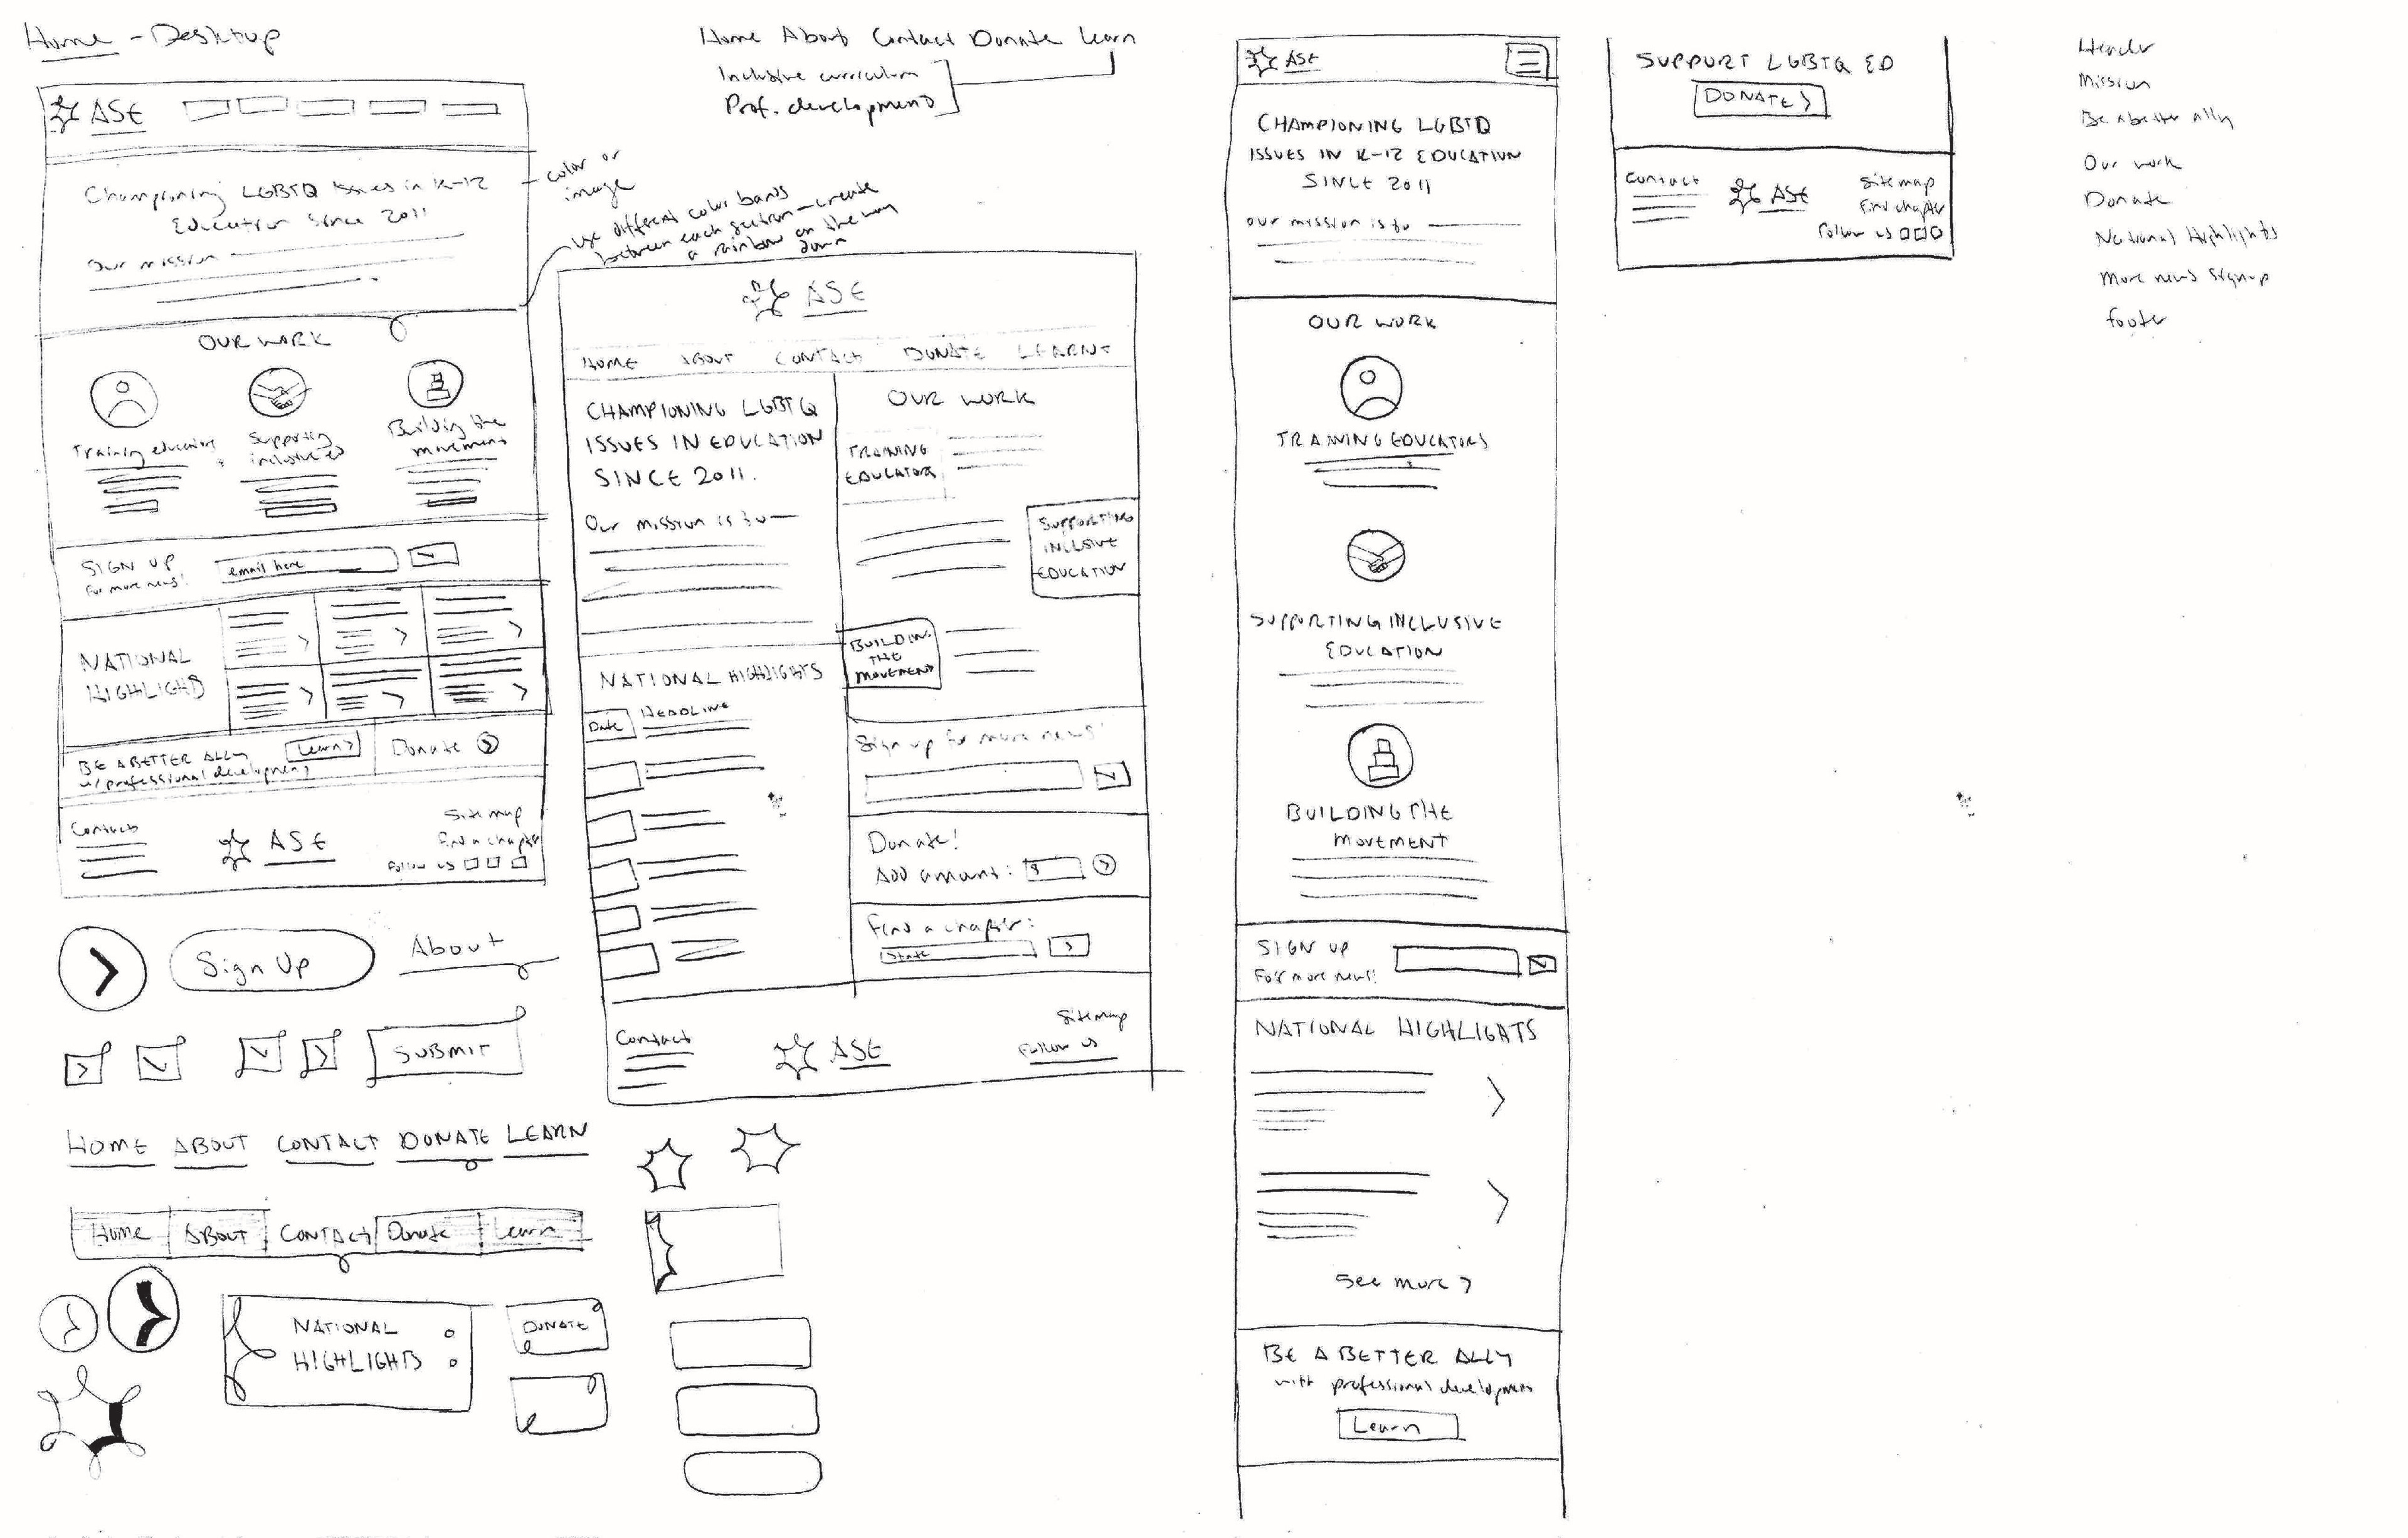 Home - Desktop
ASE
Championing LGBTQ issues in K-12
Education Since 2011
Our mission
OUR WORK
Training educators
Supporting
inclusive ed
Building the
movement
SIGN UP
For more news!
email here
NATIONAL
HIGHLIGHTS
BE A BETTER ALLY
w/ professional development
Learn >
Donate >
Contact
ASE
Sitemap
Find a chapter
Follow us
color or
image
Use different color bands
between each section - create
a rainbow on the way
down
Home About Contact Donate Learn
Inclusive curriculum
Prof. development
>
Sign Up
About
SUBMIT
HOME ABOUT CONTACT DONATE LEARN
Home ABOUT CONTACT Donate Learn
NATIONAL
HIGHLIGHTS
DONATE
ASE
HOME ABOUT CONTACT DONATE LEARN
CHAMPIONING LGBTQ
ISSUES IN EDUCATION
SINCE 2011.
Our mission is to
NATIONAL HIGHLIGHTS
Date
HEADLINE
OUR WORK
TRAINING
EDUCATOR
SUPPORTING
INCLSIVE
EDUCATION
BUILDING
THE
MOVEMENT
Sign up for more news!
Donate!
Add amount: $
Find a chapter:
State
Contact
ASE
Sitemap
Follow us
ASE
CHAMPIONING LGBTQ
ISSUES IN K-12 EDUCATION
SINCE 2011
Our mission is to
OUR WORK
TRAINING EDUCATORS
SUPPORTING INCLUSIVE
EDUCATION
BUILDING THE
MOVEMENT
SIGN UP
For more news!
NATIONAL HIGHLIGHTS
See more >
BE A BETTER ALLY
with professional development
Learn
SUPPORT LGBTQ ED
DONATE >
Contact
ASE
Sitemap
Find chapter
Follow us
Header
Mission
Be a better ally
Our work
Donate
National Highlights
More news signup
footer